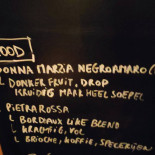 ROOD
DONNA MARZIA NEGROAMARO (
L DONKER FRUIT, DROP
KRUIDIG MAAR HEEL SOEPEL
PIETRAROSSA
L BORDEAUX LIKE BLEND
L KRACHTIG, VOL
L BRIOCHE, KOFFIE, SPECERIJEN